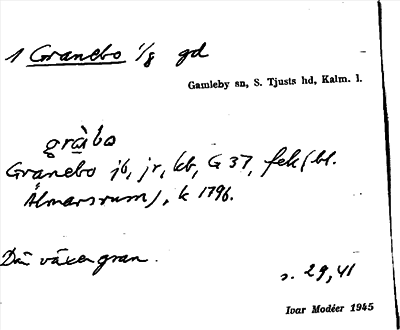 1 Granebo 1/8 gd
Gamleby sn, S. Tjusts hd, Kalm. l.
gràbo
Granebo jb, jr, kb, G 37, fek (bl.
Ålmarsrum), k 1796.
Där växer gran.
s. 29, 41
Ivar Modéer 1945